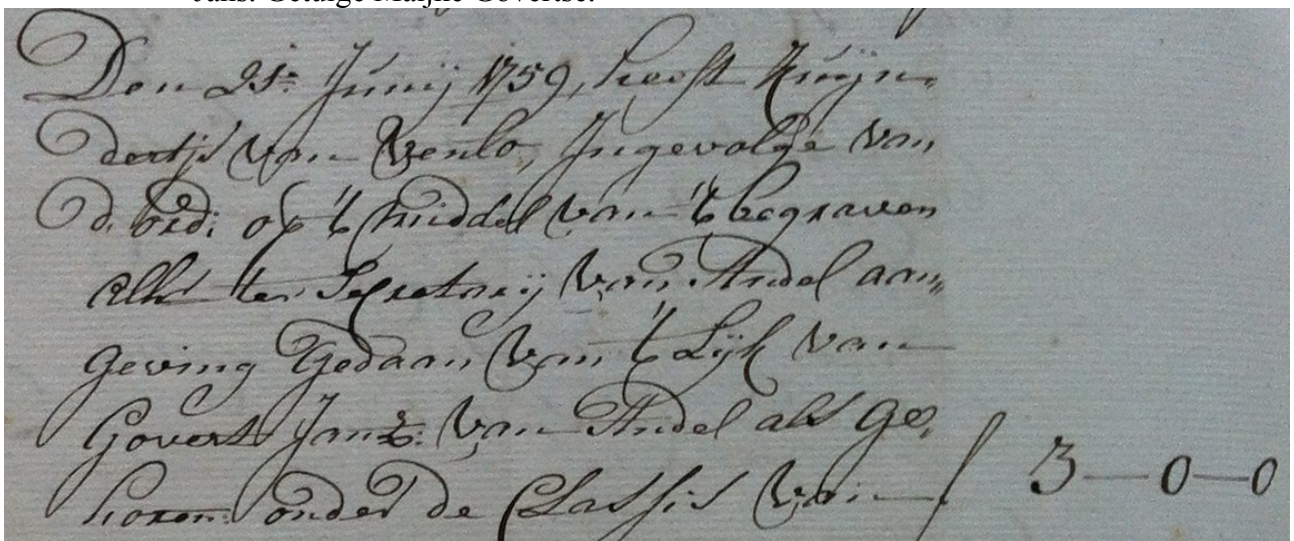 Jans. Getuige Maijke Govertse.
Den 21e: Junij 1759, heeft Kuijn„
dertje van Venlo, Ingevolge van
d. ord: op 't middel van 't begraven
alhr ter Secretarij van Andel aan„
geving Gedaan van 't Lijk van
Govert Janz: van Andel als ge,
horen onder de Classis van / 3—0—0